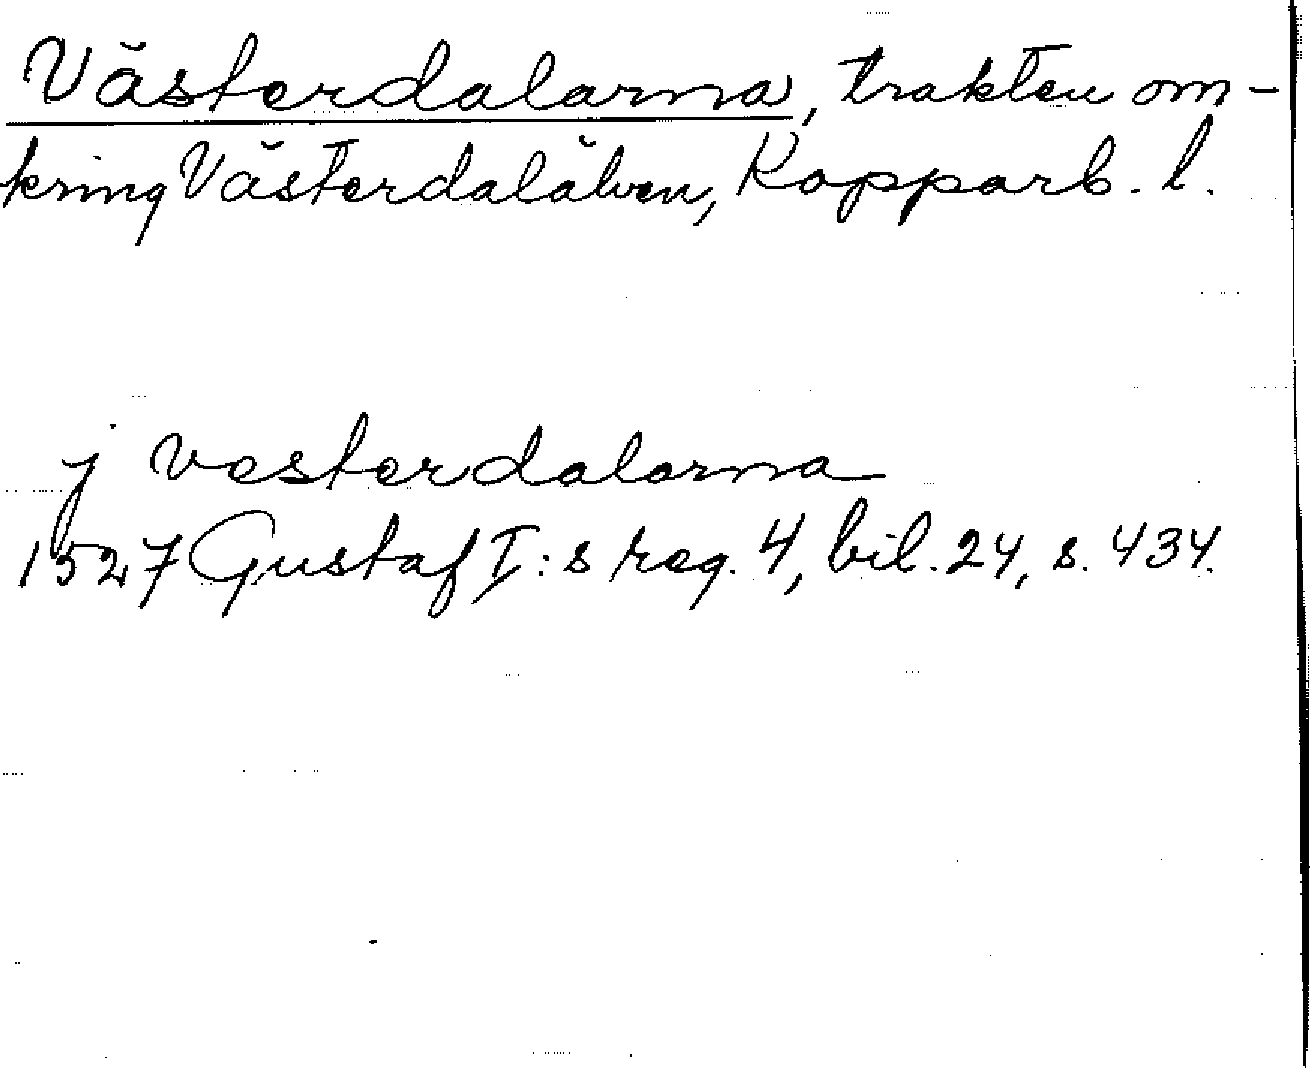 Västerdalarna, trakten om-
kring Västerdalälven, Kopparb. l.
j vesterdalarna
1527 Gustaf I:s reg. 4, bil. 24, s. 434.